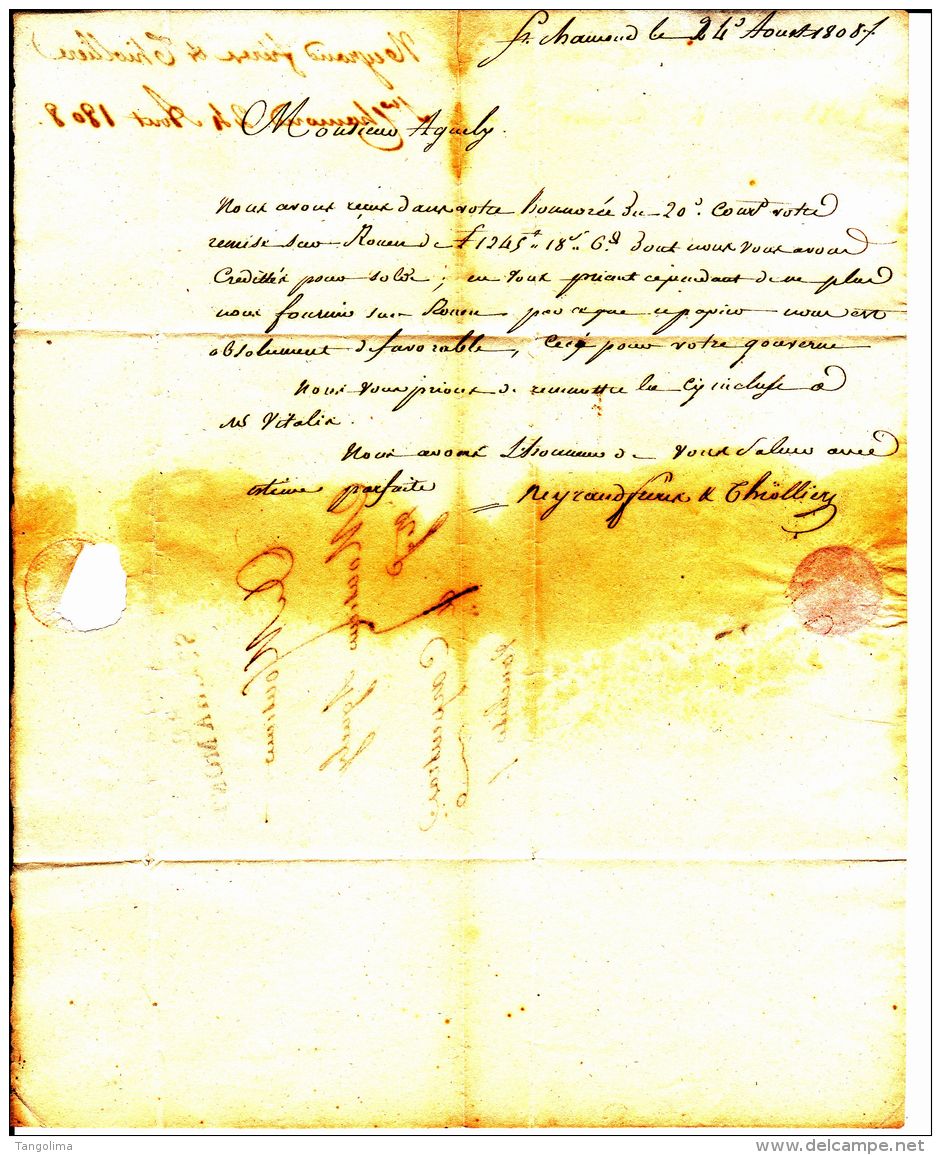 St. chamond le 24e Aoust 1808
Monsieur Aguely
Nous avons reçus dans votre honnorée du 20e. Cour.t votre
remise sur Rouen de £ 1245.t 18.s 6.d dont nous vous avons
Credittés pour solde; en vous priant cependant de ne plus
nous fournir sur Rouen parceque ce papier nous est
absolument défavorable, Ceçy pour votre gouverne
Nous vous prions de remettre la Cy incluse a
Mr Vitalis.
Nous avons L'honneur de vous saluer avec
estime parfaite Neyrand freres & Thiollier
Neyrand freres & Thiolliere
St Chamond 24 Aout 1808
A Monsieur
Tangolima
www.delcampe.net